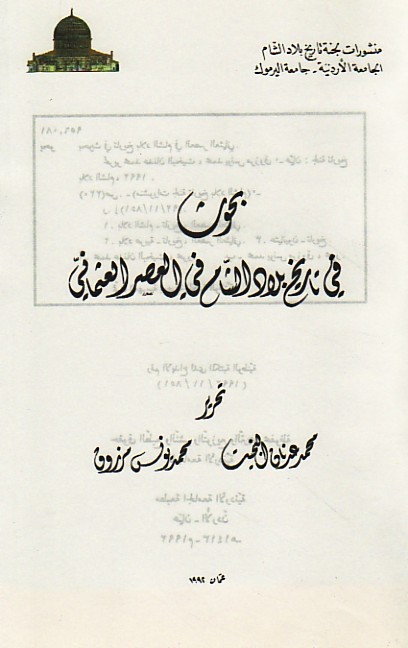 منشورات لجنة تاريخ بلاد الشام
الجامعة الأردنية - جامعة اليرموك
بحوث
في تاريخ بلاد الشام في العصر العثماني
تحرير
محمد عدنان البخيت محمد يونس مرزوق
عمان ١٩٩٢